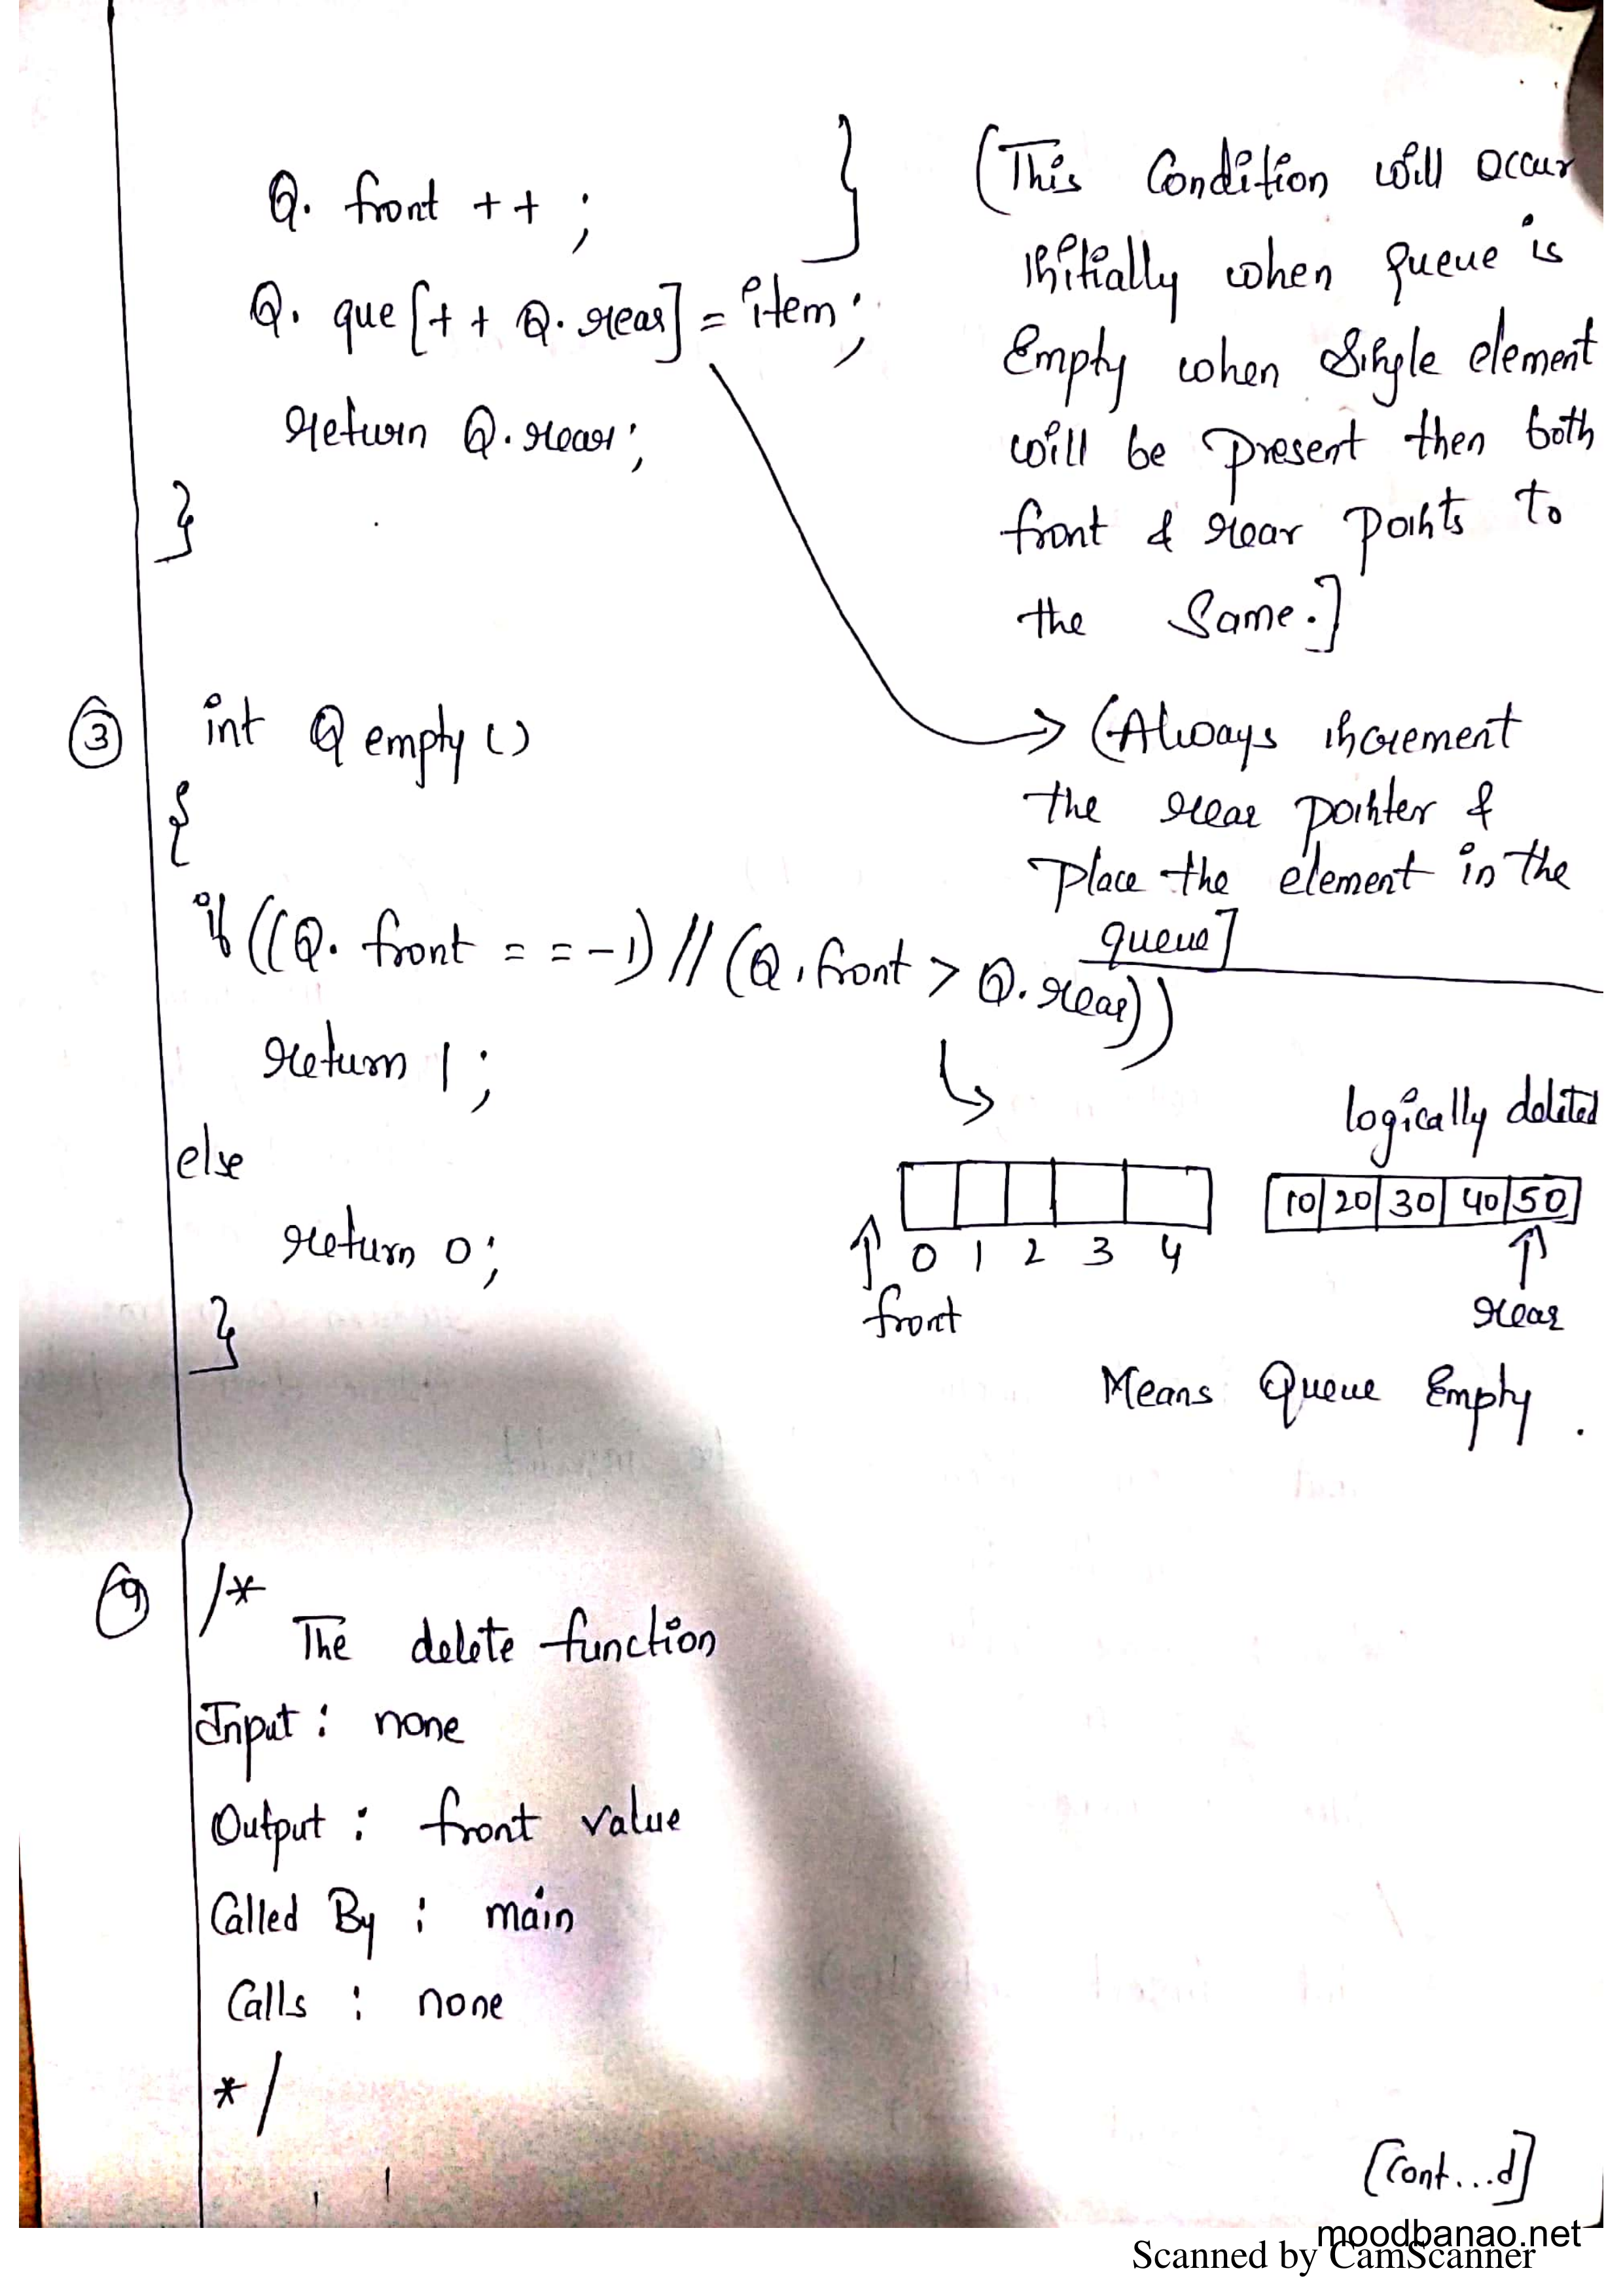 Q. front ++ ; }
Q. que [++ Q. rear] = item ;
return Q. rear ;
}
(This Condition will occur
initially when queue is
Empty when Single element
will be present then both
front & rear points to
the Same.]
→ (Always increment
the rear pointer &
Place the element in the
queue]
③ int Qempty ()
{
if ((Q. front == -1) // (Q. front > Q. rear))
return 1 ;
else
return 0 ;
}
logically deleted
10 20 30 40 50
0 1 2 3 4
front
rear
Means Queue Empty .
/*
The delete function
Input : none
Output : front value
Called By : main
Calls : none
*/
[Cont...d]
moodbanao.net
Scanned by CamScanner